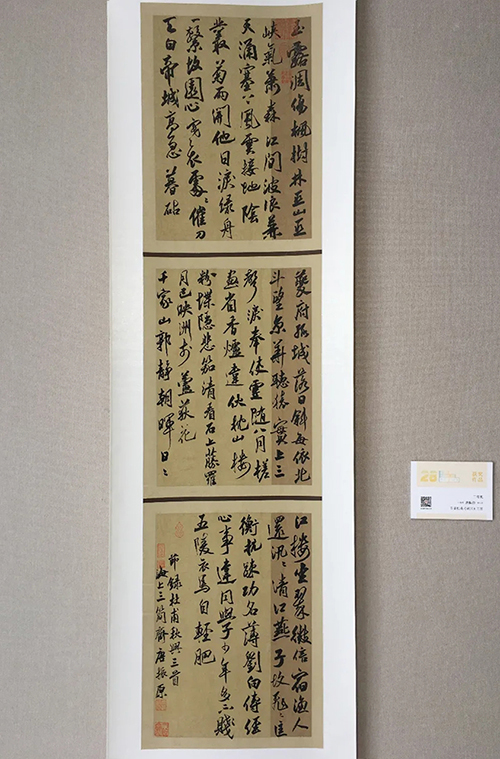 玉露凋傷楓樹林巫山巫
峽氣蕭森江間波浪兼
天涌塞上風雲接地陰
叢菊兩開他日淚孤舟
一繫故園心寒衣處〻催刀
尺白帝城高急暮砧
夔府孤城落日斜每依北
斗望京華聽猿實下三
聲淚奉使虛隨八月槎
畫省香爐違伏枕山樓
粉堞隱悲笳請看石上藤蘿
月已映洲前蘆荻花
千家山郭靜朝暉日〻
江樓坐翠微信宿漁人
還汎〻清秋燕子故飛〻匡
衡抗疏功名薄劉向傳經
心事違同學少年多不賤
五陵衣馬自輕肥
節錄杜甫秋興三首
海上三簡齋唐振原
25